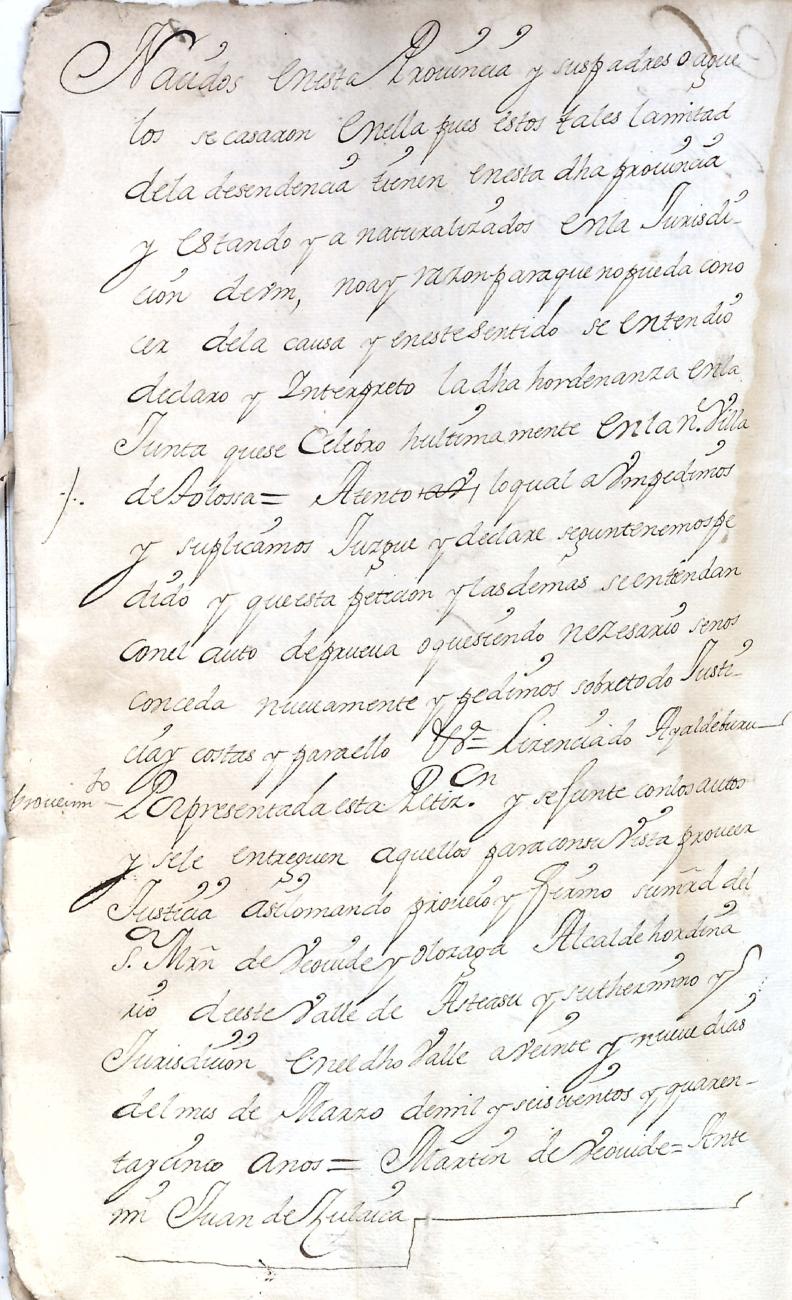 Nacidos enesta Prouincia y suspadres o ague
los se casaron Enella pues estos tales lamitad
dela desendencia tienen enesta dha prouincia
y estando ya naturalizados enla Jurisdi-
cion devm, noay razonparaque nopueda cono
cer dela causa y enestesentido se entendio
declaro y Interpreto ladha hordenanza enla
Junta quese Celebro hultimamente Enlan. Villa
deTolossa= Atento lo qual a Vmpedimos
y suplicamos Juzgue y declare seguntenemospe
dido y queesta peticion ylasdemas seentendan
conel auto deprueua oquesiendo nezesario senos
conceda nueuamente y pedimos sobretodo Justi-
ciay costas y paraello Lizenciado Ayaldeburu
proueimto
Porpresentada esta Petizon. y seJunte conlosautos
y sele entreguen aquellos paraconsu Vista proueer
Justicia asilomando proueio y firmo sumrd del
S. Mrn de Veouide y Olozaga Alcalde hordina
rio deeste Valle de Asteasu y suthermino y
Jurisdicion Eneldho Valle aveinte y nueue dias
delmes de Marzo demil y seiscientos y quaren-
taycinco anos= Martin de Veouide= Ante
mi Juan de Zulaica